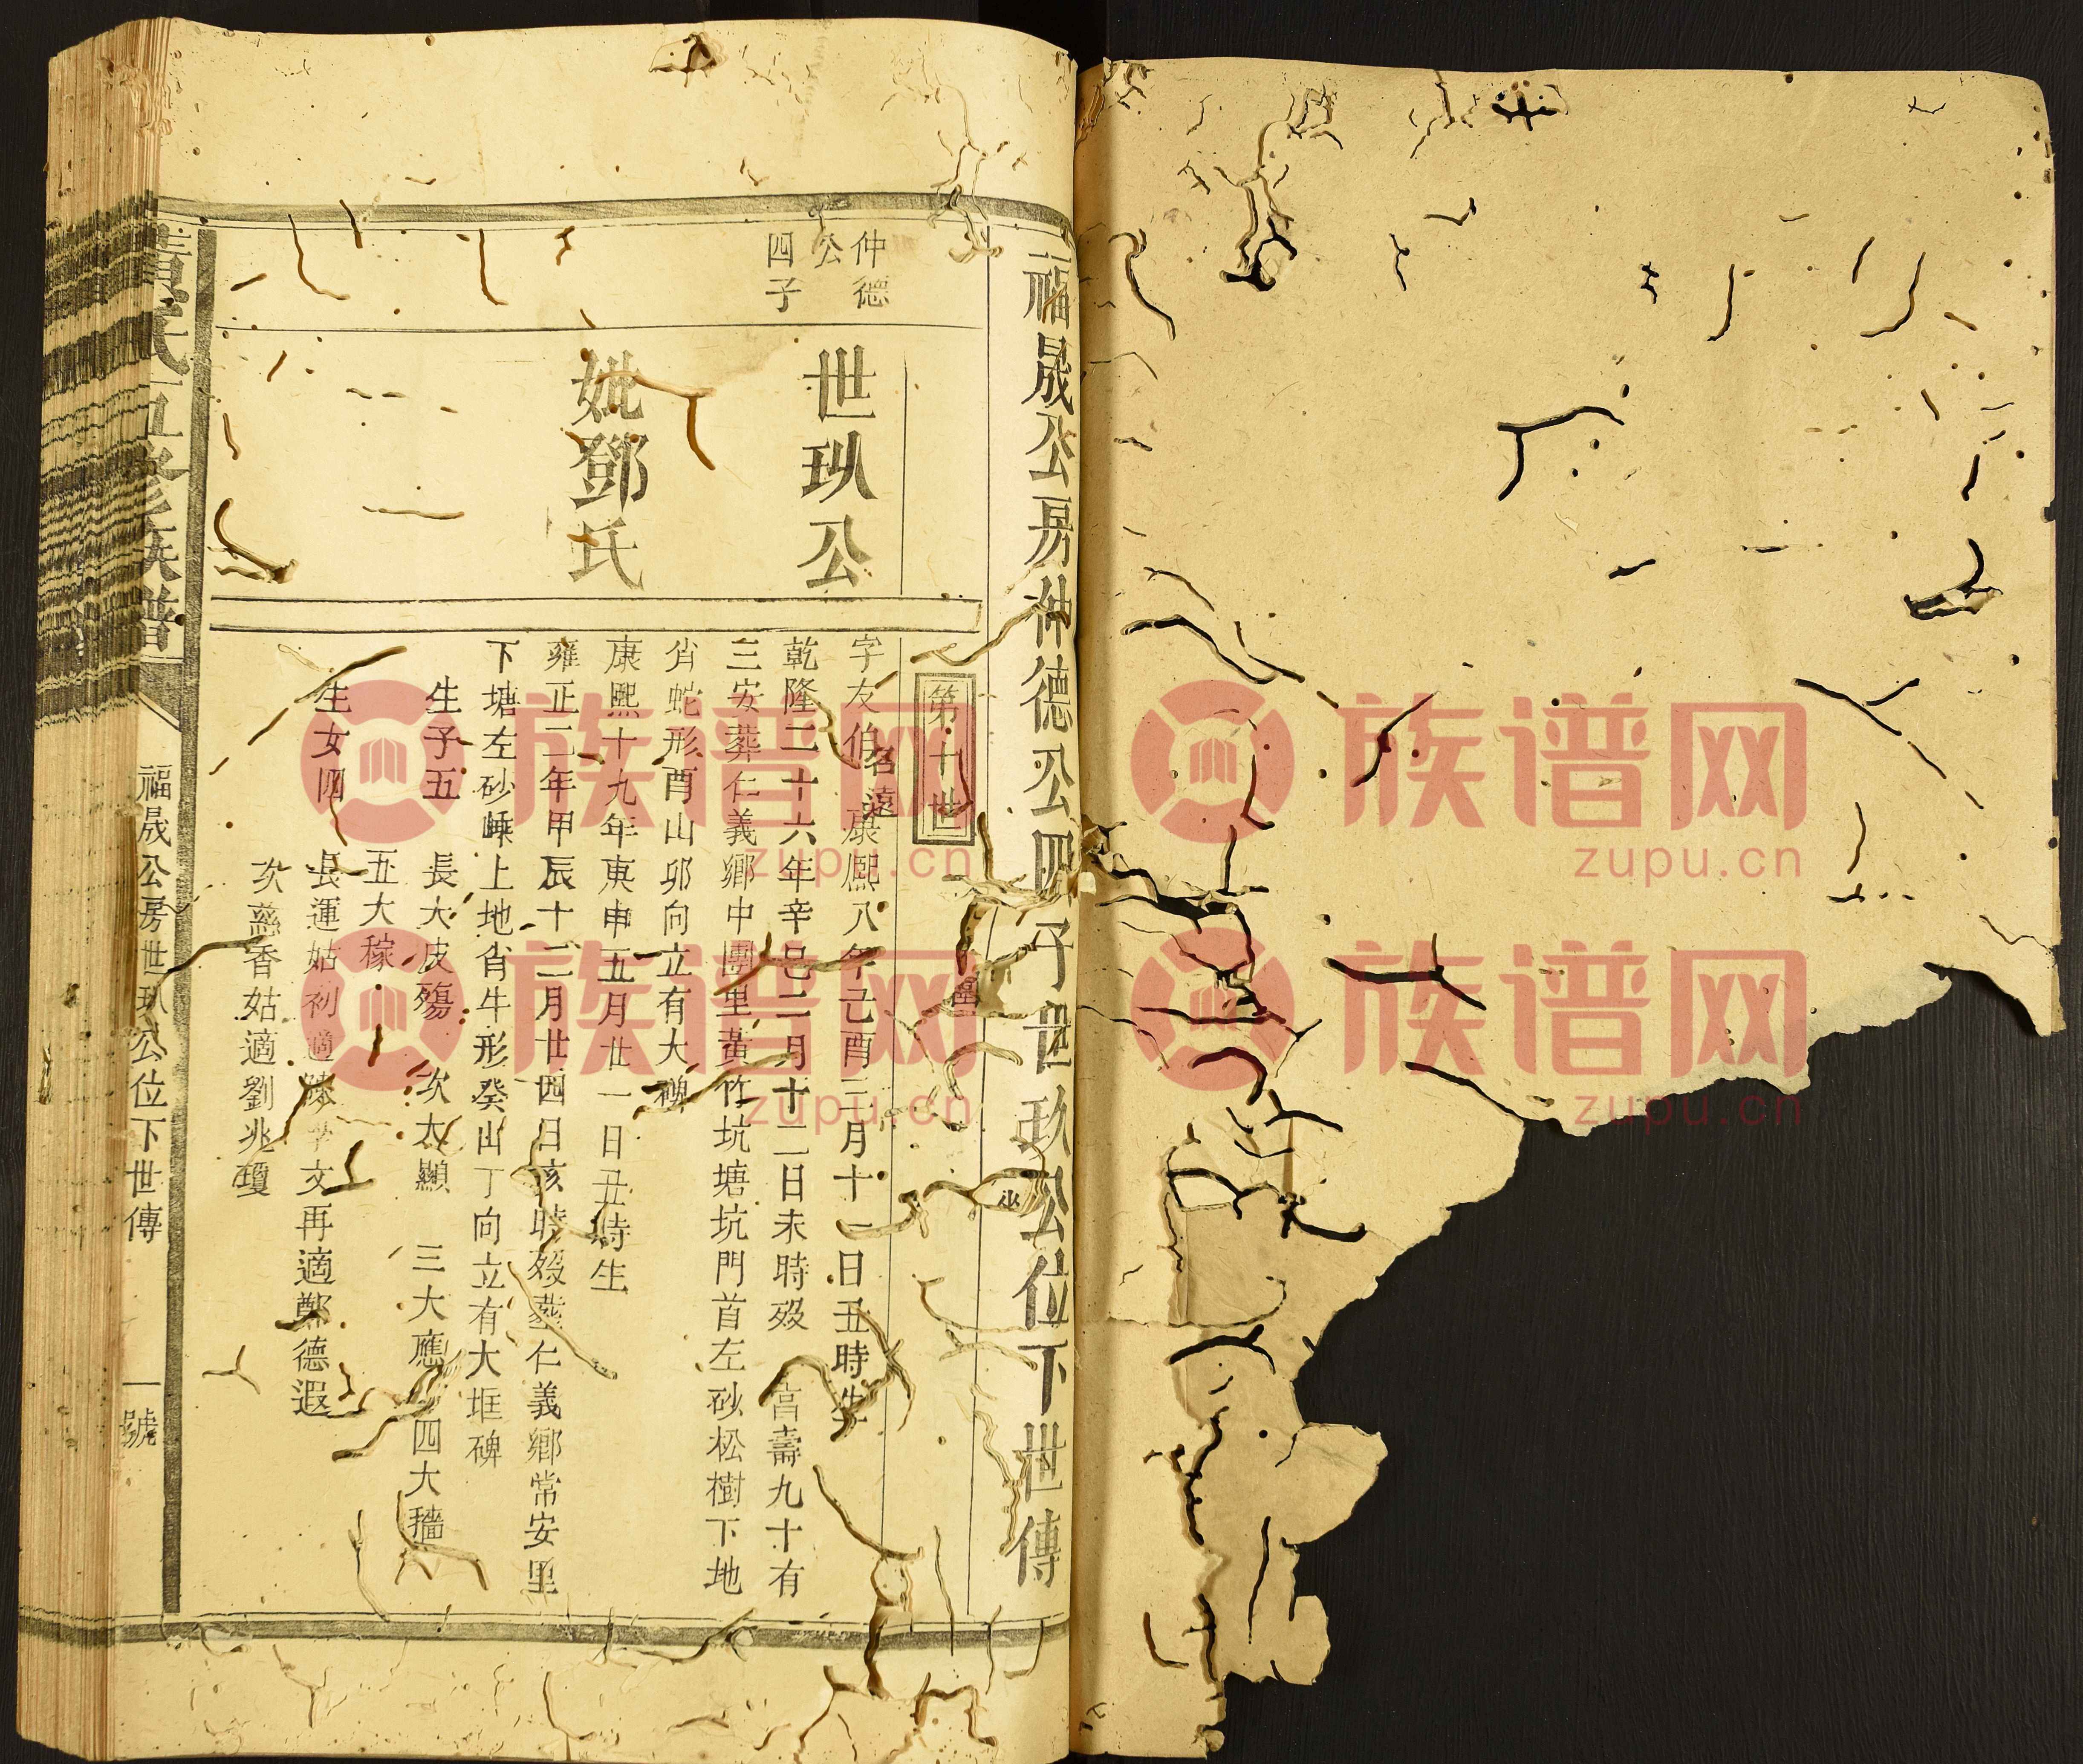 福晟公房仲德公四子世玖公位下世傳
第十世
仲德
公
四子
世玖公
字友伯名遠康熙八年己酉三月十一日丑時生
乾隆二十六年辛巳二月十二日未時歿 高壽九十有
三安葬仁義鄉中團里黃竹坑塘坑門首左砂松樹下地
肖蛇形酉山卯向立有大碑
妣鄧氏
康熙十九年庚申五月廿一日丑時生
雍正二年甲辰十二月廿四日亥時歿葬仁義鄉常安里
下塘左砂嵊上地肖牛形癸山丁向立有大堆碑
生子五 長大皮殤 次大顯 三大應 四大穡
五大稼
生女四 長運姑初適陳 文再適鄭德遐
次慈香姑適劉兆瓊
氏五修族譜
福晟公房世玖公位下世傳
一號
族谱网
zupu.cn
族谱网
zupu.cn
族谱网
zupu.cn
族谱网
zupu.cn